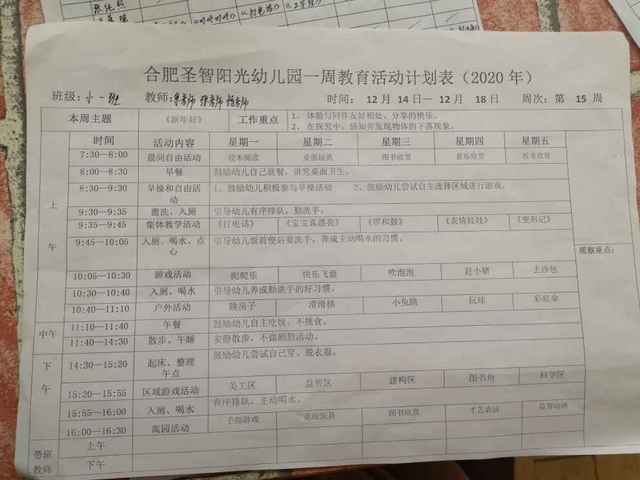 合肥圣智阳光幼儿园一周教育活动计划表（2020 年）
班级：小一班 教师： 时间： 12 月 14 日— 12 月 18 日 周次：第 15 周
本周主题 《新年好》 工作重点 1、体验与同伴友好相处、分享的快乐。
2、在探究中，感知并发现物体的下落现象。
时间 活动内容 星期一 星期二 星期三 星期四 星期五
7:30—8:00 晨间自由活动 绘本阅读 桌面玩具 图书欣赏 音乐欣赏
8:00—8:30 早餐 鼓励幼儿自己就餐，讲究桌面卫生。
上午
8:30—9:30 早操和自由活动 1、鼓励幼儿积极参与早操活动 2、鼓励幼儿尝试自主选择区域进行游戏。
9:30—9:35 盥洗、入厕 引导幼儿有序排队，勤洗手。
9:35—9:45 集体教学活动 《打电话》 《宝宝真漂亮》 《带和鼓》 《表情娃娃》 《变形记》
9:45—10:05 入厕、喝水、点心 引导幼儿饭前便后要洗手，养成主动喝水的习惯。
观察重点：
10:05—10:30 游戏活动 爬爬乐 快乐飞盘 吹泡泡 赶小猪 丢沙包
10:30—10:40 入厕、喝水 引导幼儿养成勤洗手的好习惯。
10:40—11:10 户外活动 跳房子 滑滑梯 小鱼跳 玩球 彩虹伞
中午
11:10—11:40 午餐 鼓励幼儿自主吃饭，不挑食。
11:40—12:00 散步、午睡 安静散步，不做剧烈活动。
下午
14:30—15:20 起床、整理 午点 鼓励幼儿尝试自己穿、脱衣服。
15:20—15:55 区域游戏活动 美工区 益智区 建构区 图书角 科学区
15:55—16:00 入厕、喝水 有序排队，主动喝水。
16:00—16:30 离园活动 手指游戏 桌面玩具 图书欣赏 才艺表演
带班教师 上午
下午